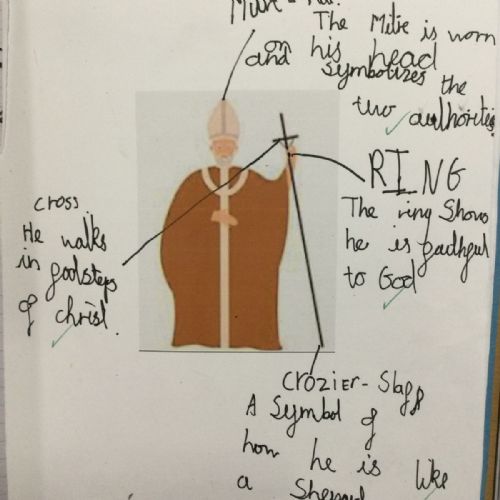 Mitre - Hat.
The Mitre is worn
on his head
and symbolizes the
two authorities
RING
The ring Shows
he is faithful
to God
cross
He walks
in footsteps
of christ.
Crozier - Staff
A Symbol of
how he is like
a Shepherd